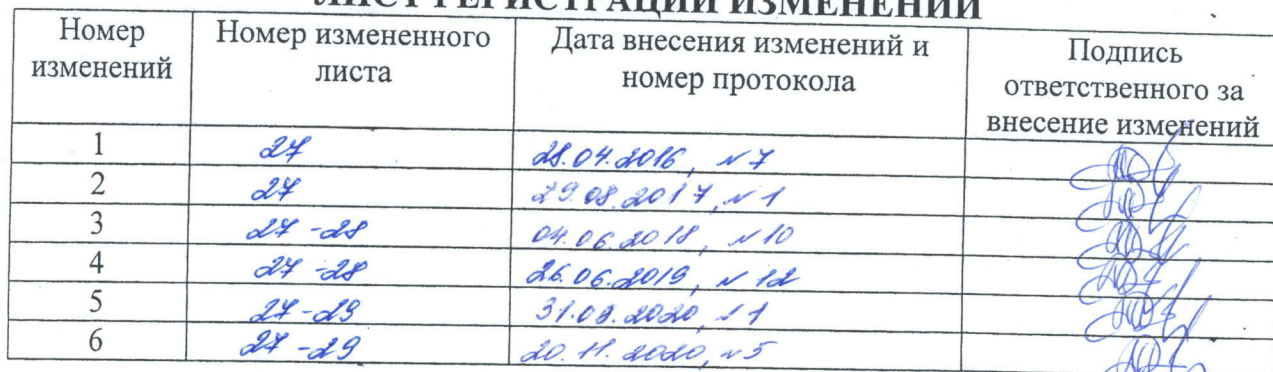 ЛИСТ РЕГИСТРАЦИИ ИЗМЕНЕНИЙ
Номер изменений Номер измененного листа Дата внесения изменений и номер протокола Подпись ответственного за внесение изменений
1 27 28.04.2016, №7
2 27 29.08.2017, №1
3 27-28 04.06.2018, №10
4 27-28 26.06.2019, №12
5 27-29 31.08.2020, №1
6 27-29 20.11.2020, №5